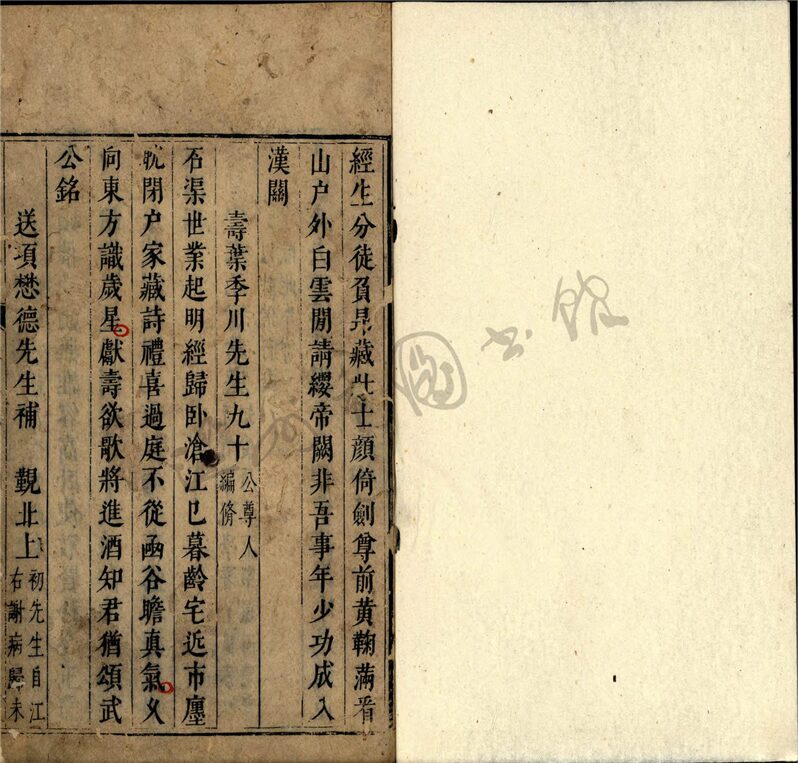 經生分徒負藏此士顔倚劍尊前黄鞠滿看
山户外白雲閒請纓帝闕非吾事年少功成入
漢關
壽葉季川先生九十
公尊人
編脩
石渠世業起明經歸卧滄江已暮齡宅近市廛
躭閉户家藏詩禮喜過庭不從函谷瞻真氣又
向東方識歲星獻壽欲歌將進酒知君猶頌武
公銘
送項懋德先生補 覲北上
初先生自江
右謝病歸未